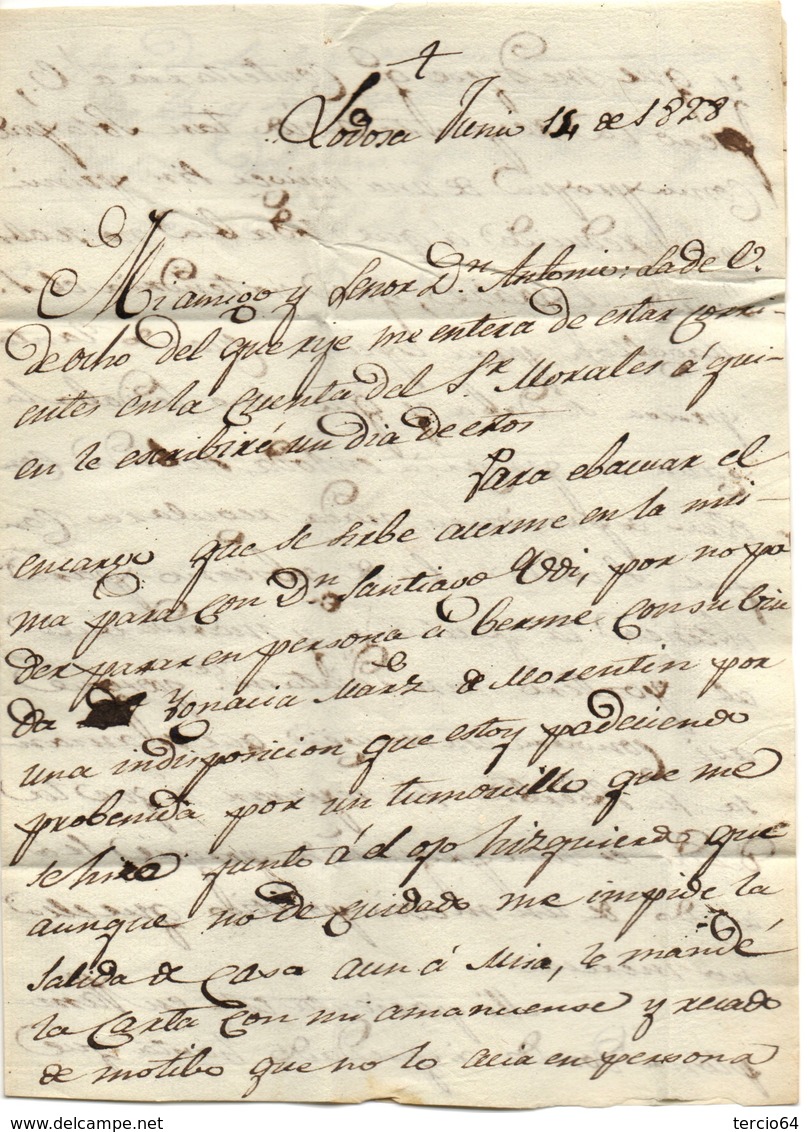 +
Lodosa Junio 14 de 1828
Mi amigo y Señor Dn. Antonio: La de V.
de ocho del que rije me entera de estar corri-
entes en la cuenta del Sr. Morales á qui-
en le escribiré un dia de estos
Para ebacuar el
encargo que se sirbe acerme en la mis-
ma para con Dn Santiago por no po
der pasar en persona á berme con su biu
da Ygnacia Marz. de Morentin por
una indisposicion que estoy padeciendo
probenida por un tumorcillo que me
se hizo junto á el ojo hizquierdo que
aunque no de cuidado me impide la
salida de casa aun á Misa, le mandé
la Carta con mi amanuense y recado
de motibo que no lo acia en persona
delcampe.net
tercio64